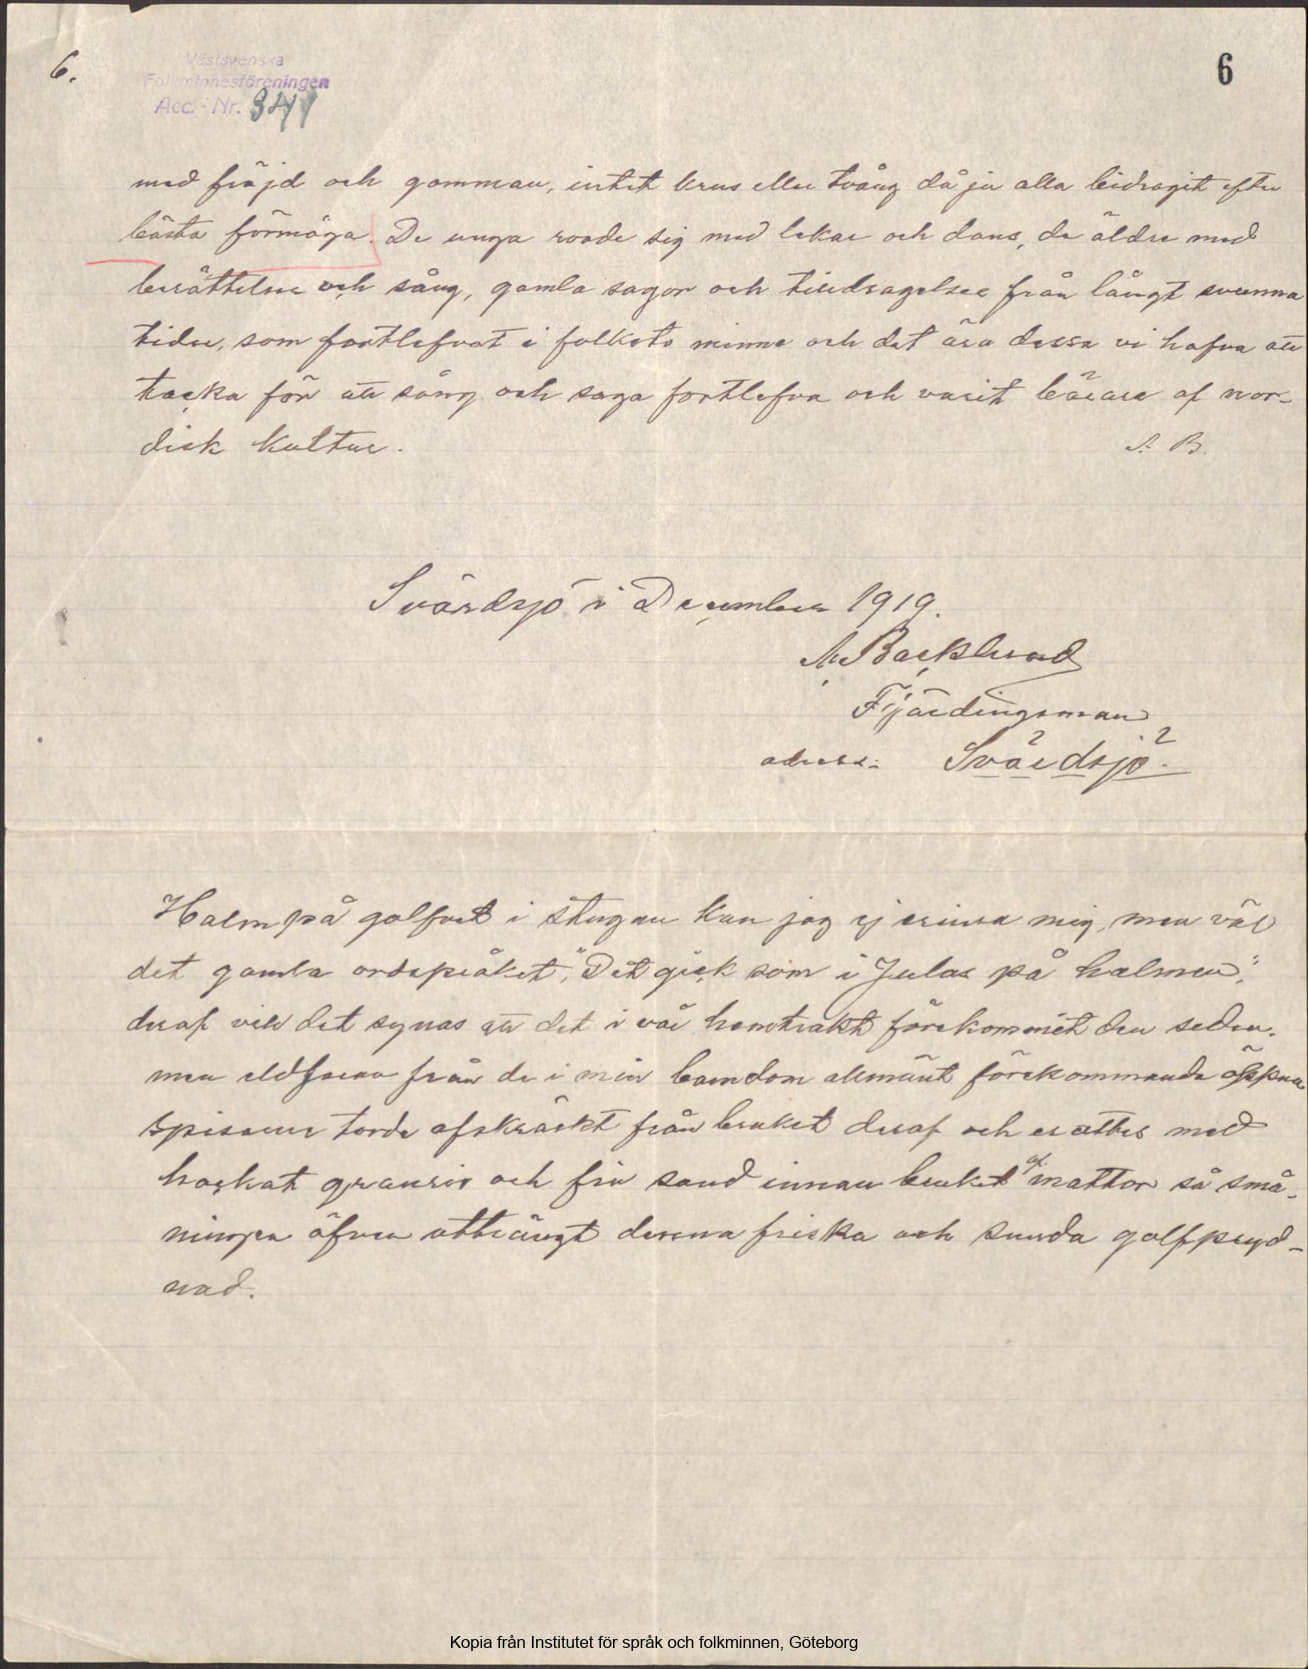 6.
Västsvenska
Folkminnesföreningen
Acc.-Nr. 341
6
med fröjd och gamman, intet krus eller tvång då ju alla bidragit efter
bästa förmåga. De unga roade sig med lekar och dans, de äldre med
berättelser och sång, gamla sagor och tilldragelser från långt svunna
tider, som fortlefvat i folkets minne och det äro dessa vi hafva att
tacka för att sång och saga fortlefva och varit bärare af nor-
disk kultur.
A. B.
Svärdsjö i December 1919.
Backlund
Fjärdingsman
adress: Svärdsjö.
Halm på golfvet i stugan kan jag ej erinra mig, men väl
det gamla ordspråket, "Det gick som i Julas på halmen",
deraf vill det synas att det i vår hemtrakt förekommit den seden.
men eldfaran från de i min barndom allmänt förekommande öppna
spisarne torde afskräckt från bruket deraf och ersattes med
hackat granris och fin sand innan bruket af mattor så små-
ningen äfven utträngt denna friska och sunda golfpryd-
nad.
Kopia från Institutet för språk och folkminnen, Göteborg